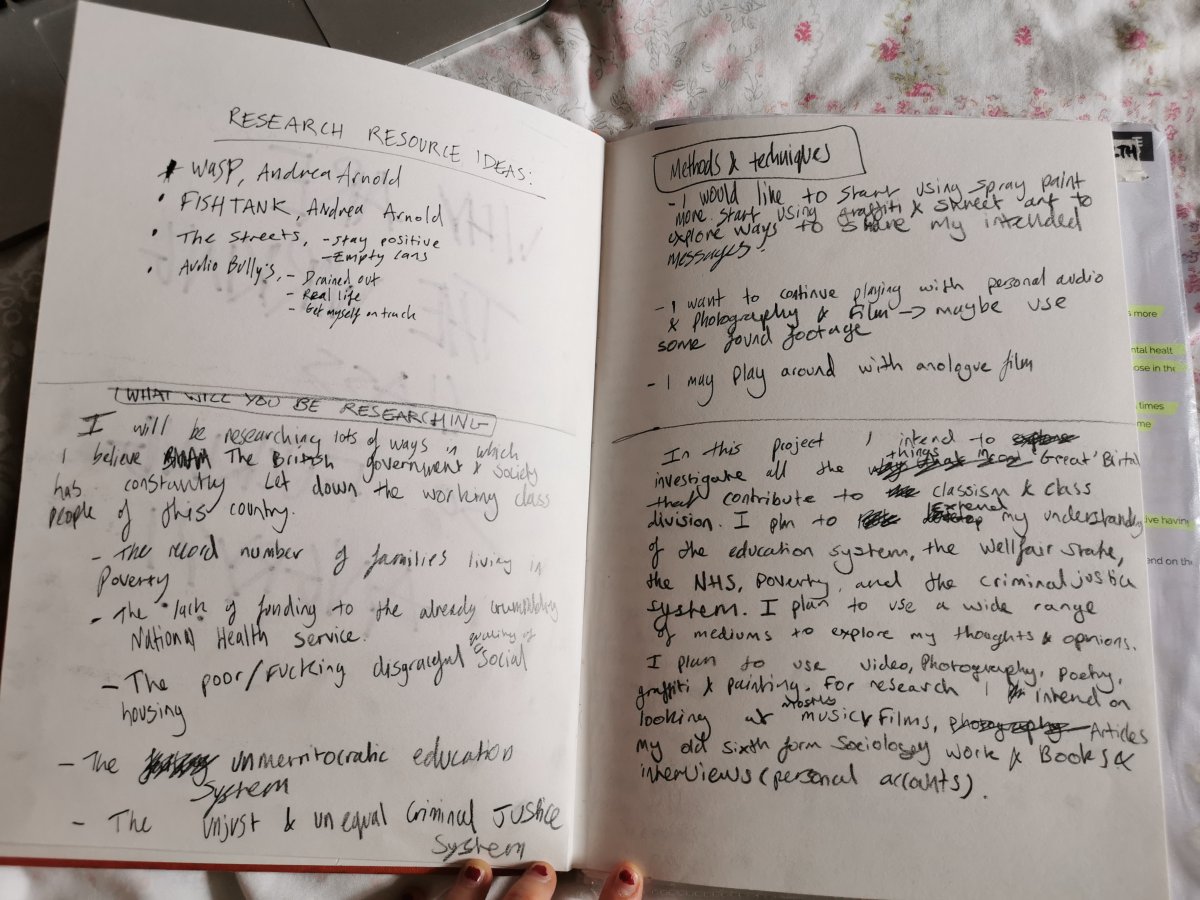 RESEARCH RESOURCE IDEAS:
• WASP, Andrea Arnold
• FISHTANK, Andrea Arnold
• The Streets, - stay positive
- Empty cans
• Audio Bully's, - Drained out
- Real life
- Get myself on track
WHAT WILL YOU BE RESEARCHING
I will be researching lots of ways in which
I believe The British government & society
has constantly let down the working class
people of this country.
- The record number of families living in
poverty
- The lack of funding to the already crumbling
National Health service.
- The poor/fucking disgraceful quality of social
housing
- The unmerritocratic education
System
- The unjust & unequal criminal JUSTICE
System
Methods & techniques
- I would like to start using spray paint
more. start using graffiti & street art to
explore ways to share my intended
messages.
- I want to continue playing with personal audio
& photography & film -> maybe use
some found footage
- I may play around with anologue film
In this project I intend to
investigate all the things 'Great' Birtai
that contribute to classism & class
division. I pln to extend my understanding
of the education system, the wellfair state,
the NHS, poverty, and the criminal justice
system. I plan to use a wide range
of mediums to explore my thoughts & opinions.
I plan to use video, photography, poetry,
graffiti & painting. For research I intend on
looking at mostly music, films, Articles
my old sixth form Sociology work & Books &
interviews (personal accounts).
LTH
s more
ntal healt
ose in the
times
me
ive having
end on the